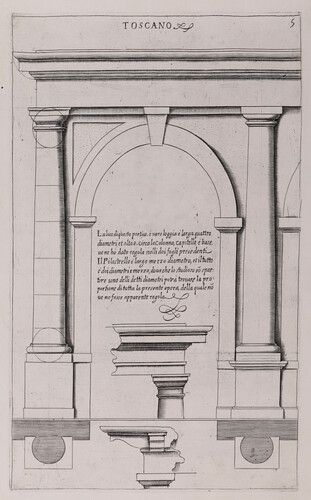 TOSCANO
5
La luce di questo portico, o vero loggia è larga quattro
diametri et alta 8. circa le Colonne, Capitelli, e base,
ve ne hò dato regola nelli dei fogli precedenti.
Il Pilastrello è largo mezzo diametro, et il tutto
è doi diametri e mezzo, dove che lo studioso
tire uno delli detti diametri potrà trovare la pro
portione di tutta la presente opera, della quale nō
ve ne fosse apparente regola.